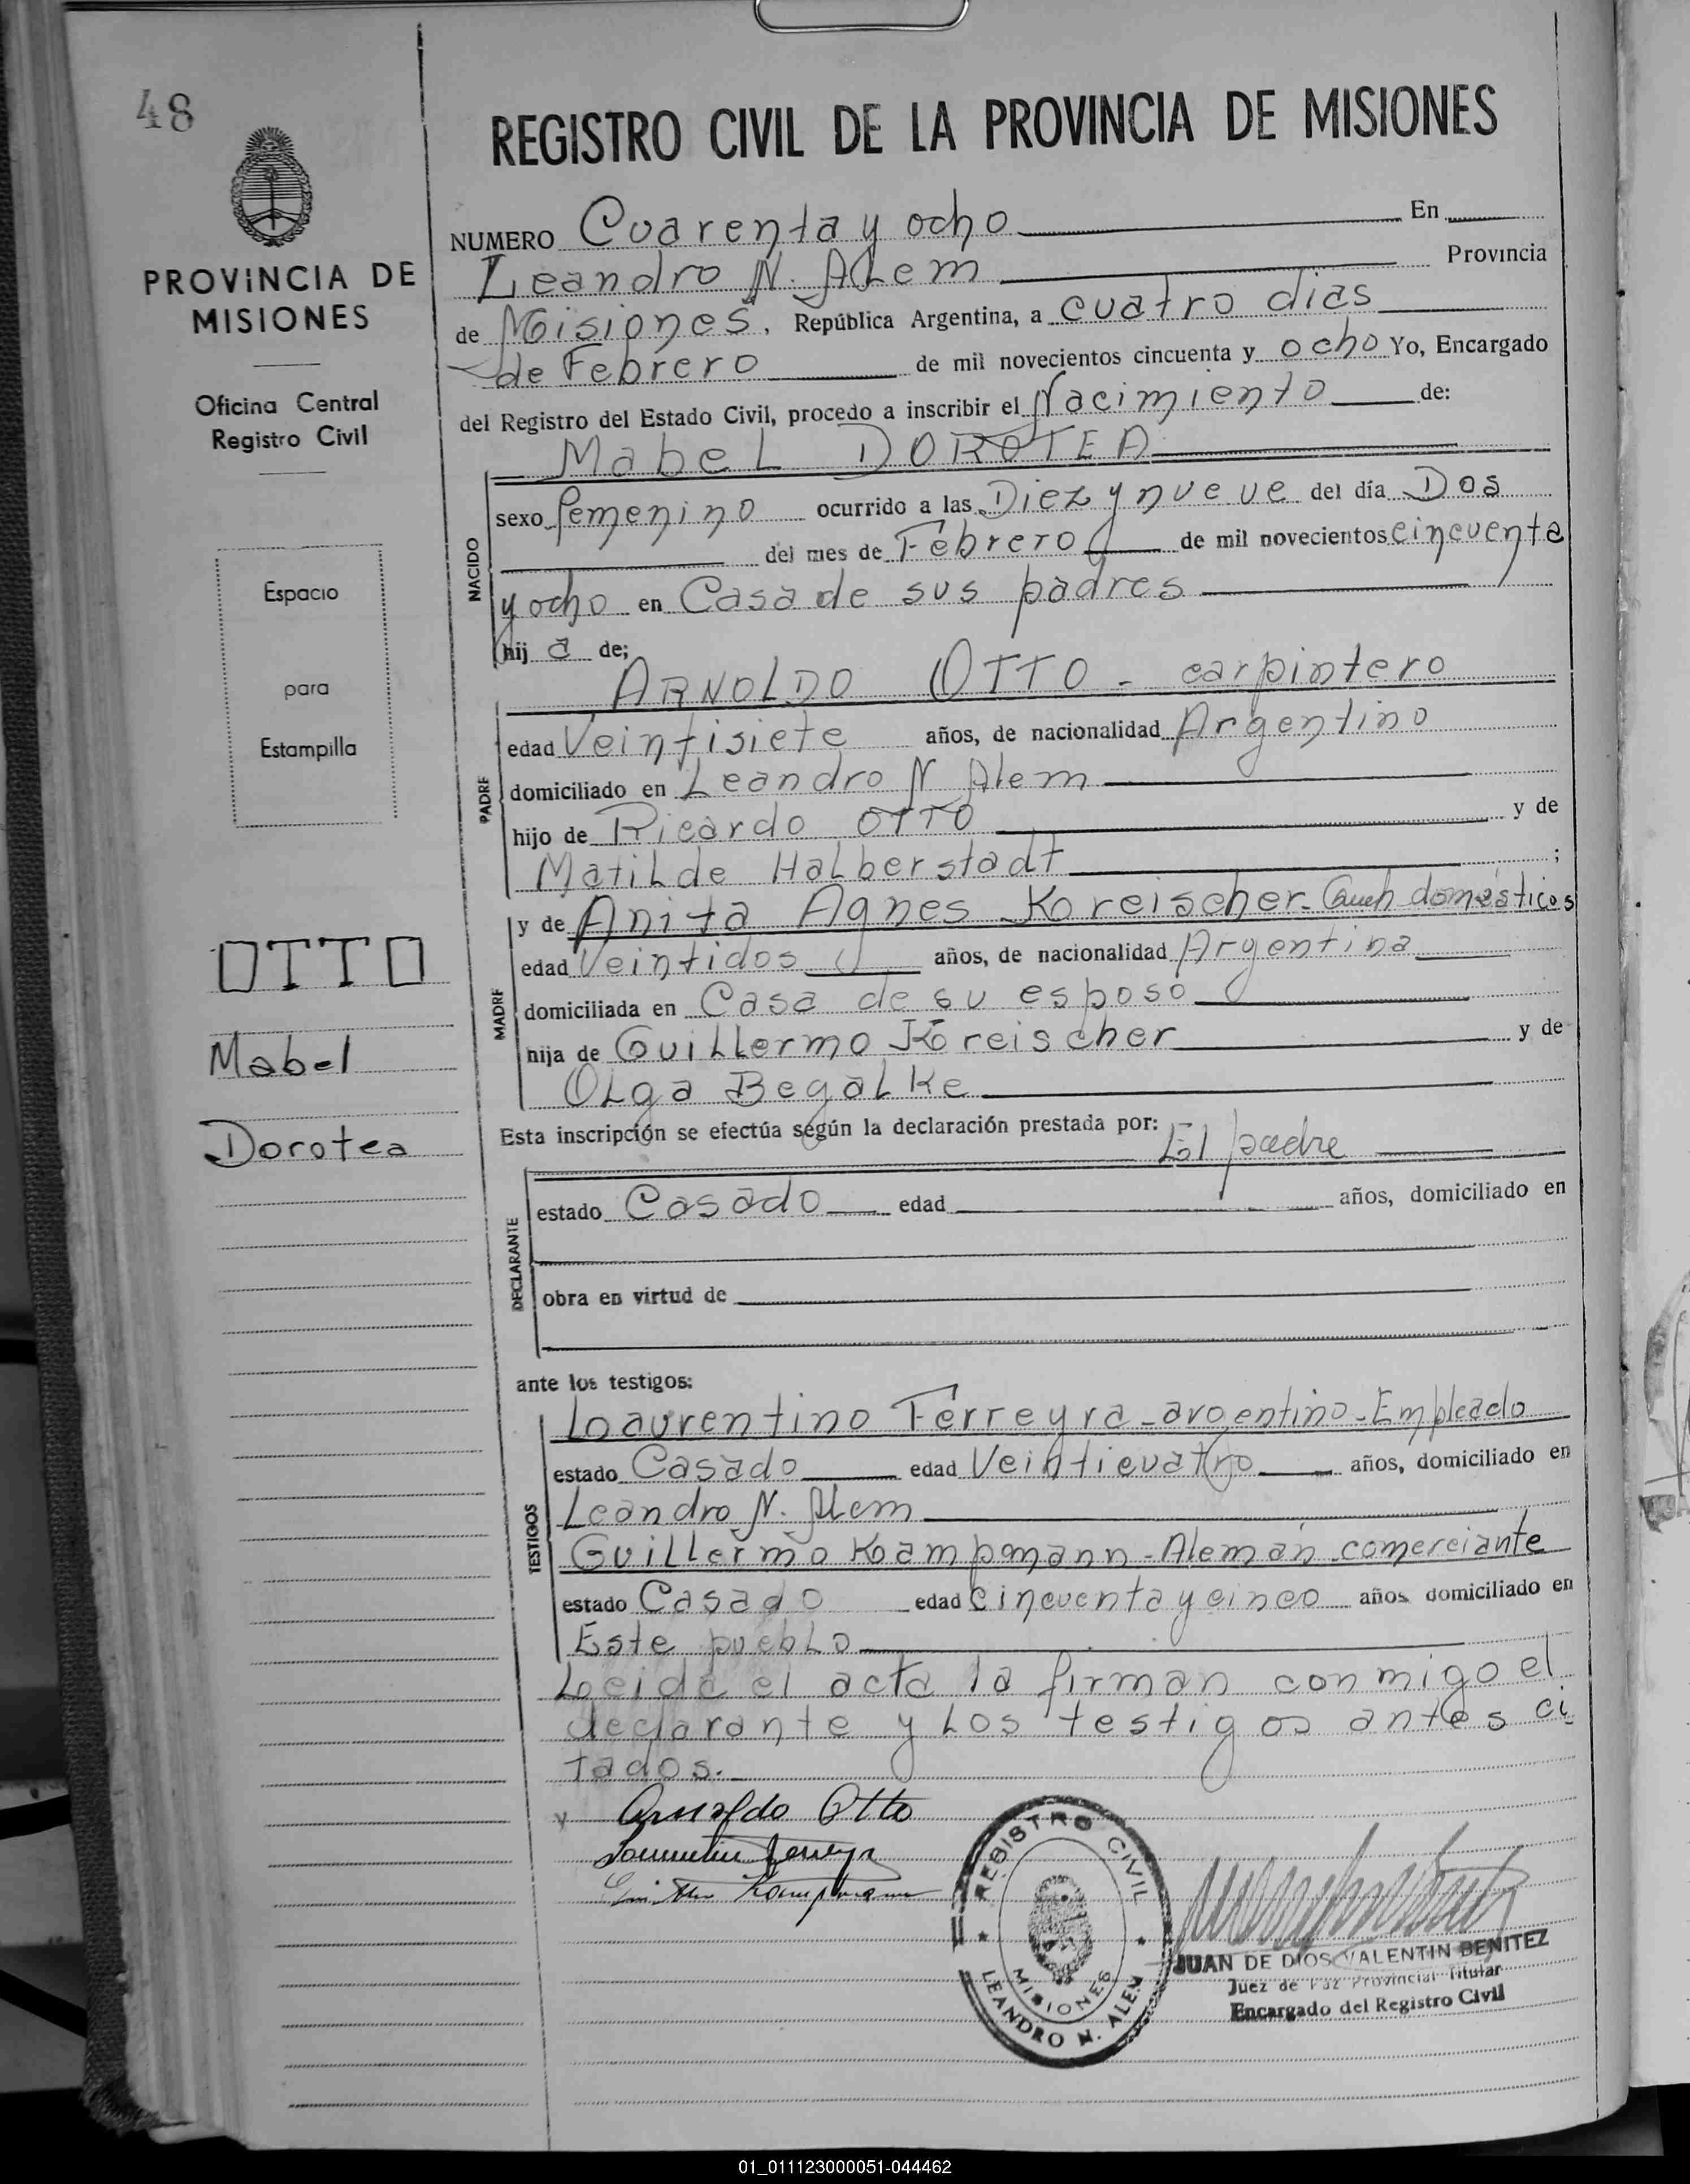 48
PROVINCIA DE
MISIONES
Oficina Central
Registro Civil
Espacio
para
Estampilla
OTTO
Mabel
Dorotea
REGISTRO CIVIL DE LA PROVINCIA DE MISIONES
NUMERO Cuarenta y ocho En
Leandro N. ALem Provincia
de Misiones, República Argentina, a cuatro dias
de Febrero de mil novecientos cincuenta y ocho Yo, Encargado
del Registro del Estado Civil, procedo a inscribir el Nacimiento de:
MabeL DOROTEA
NACIDO
sexo femenino ocurrido a las Diez y nueve del día Dos
del mes de Febrero de mil novecientos cincuenta
y ocho en Casa de sus padres
hij a de;
ARNOLDO OTTO - carpintero
PADRE
edad Veintisiete años, de nacionalidad Argentino
domiciliado en Leandro N Alem
hijo de Ricardo OTTO y de
MatiLde HaLberstadt ;
MADRE
y de Anita Agnes Koreischer - Queh domésticos
edad Veintidos años, de nacionalidad Argentina
domiciliada en Casa de su esposo
hija de GuiLLermo Koreischer y de
OLga BegaLke
Esta inscripción se efectúa según la declaración prestada por: El padre
DECLARANTE
estado Casado edad años, domiciliado en
obra en virtud de
ante los testigos:
TESTIGOS
Laurentino Ferreyra - argentino - Empleado
estado Casado edad Veinticuatro años, domiciliado en
Leandro N. Alem
GuiLLermo Kampmann - Alemán comerciante
estado Casado edad cincuenta y cinco años domiciliado en
Este puebLo
Leida el acta la firman conmigo el
declarante y Los testigos antes ci
tados.
Arnoldo Otto
REGISTRO CIVIL
MISIONES
LEANDRO N. ALEM
JUAN DE DIOS VALENTIN BENITEZ
Juez de Paz Provincial Titular
Encargado del Registro Civil
01_011123000051-044462